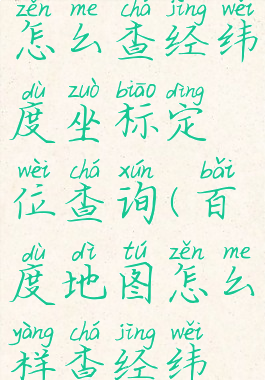 zěn me chá jīng wěi
怎么查经纬
dù zuò biāo dìng
度坐标定
wèi chá xún bǎi
位查询(百
dù dì tú zěn me
度地图怎么
yàng chá jīng wěi
样查经纬